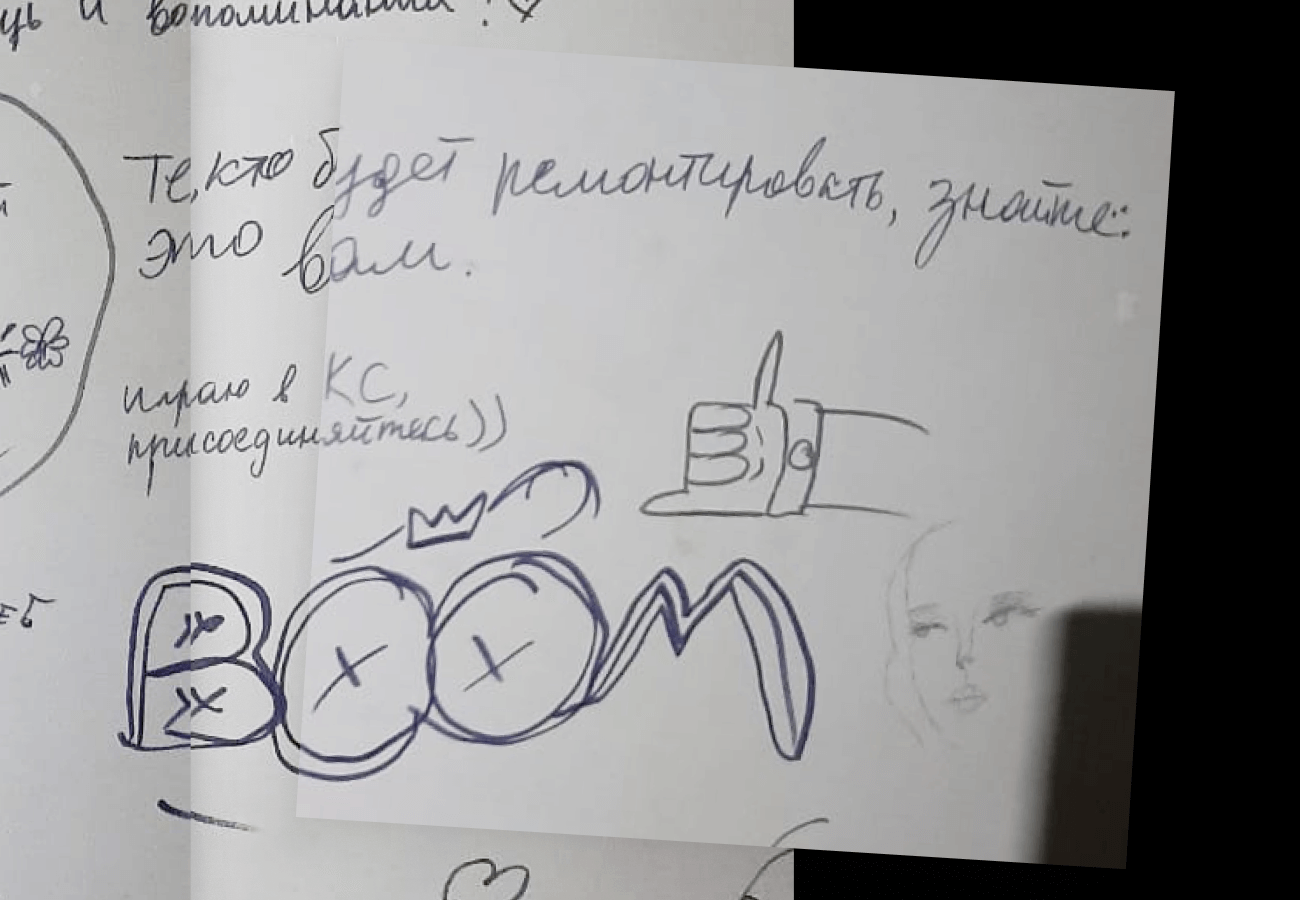 и вопоминания!
Те, кто будет ремонтировать, знайте:
это вам.
играю в КС,
присоединяйтесь))
BOOM